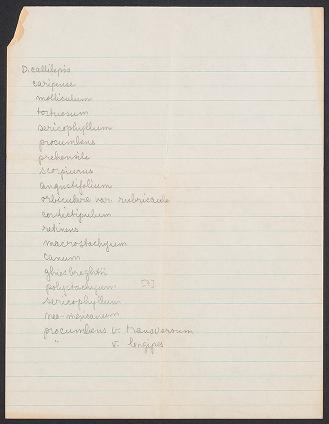 D. callilepis
caripense
molliculum
tortuosum
sericophyllum
procumbens
prehensile
scorpiurus
angustifolium
orbiculare var. rubricaule
contictipulum
retinens
macrostachyum
canum
ghiesbreghtii
polystachyum [?]
sericophyllum
neo-mexicanum
procumbens v. transversum
" v. longipes